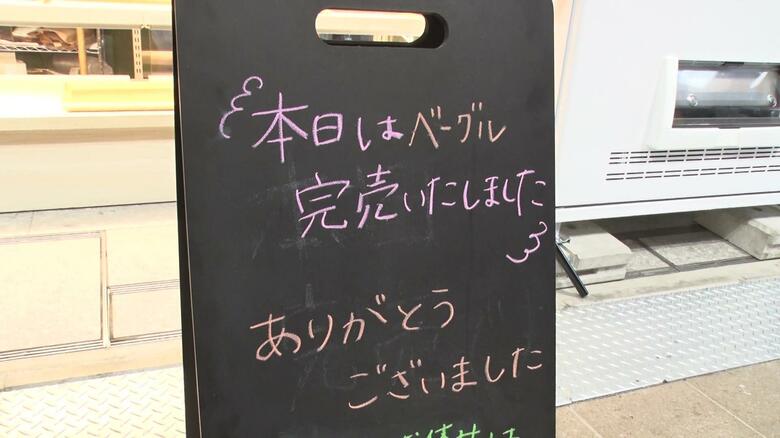 本日はベーグル
完売いたしました
ありがとう
ございました